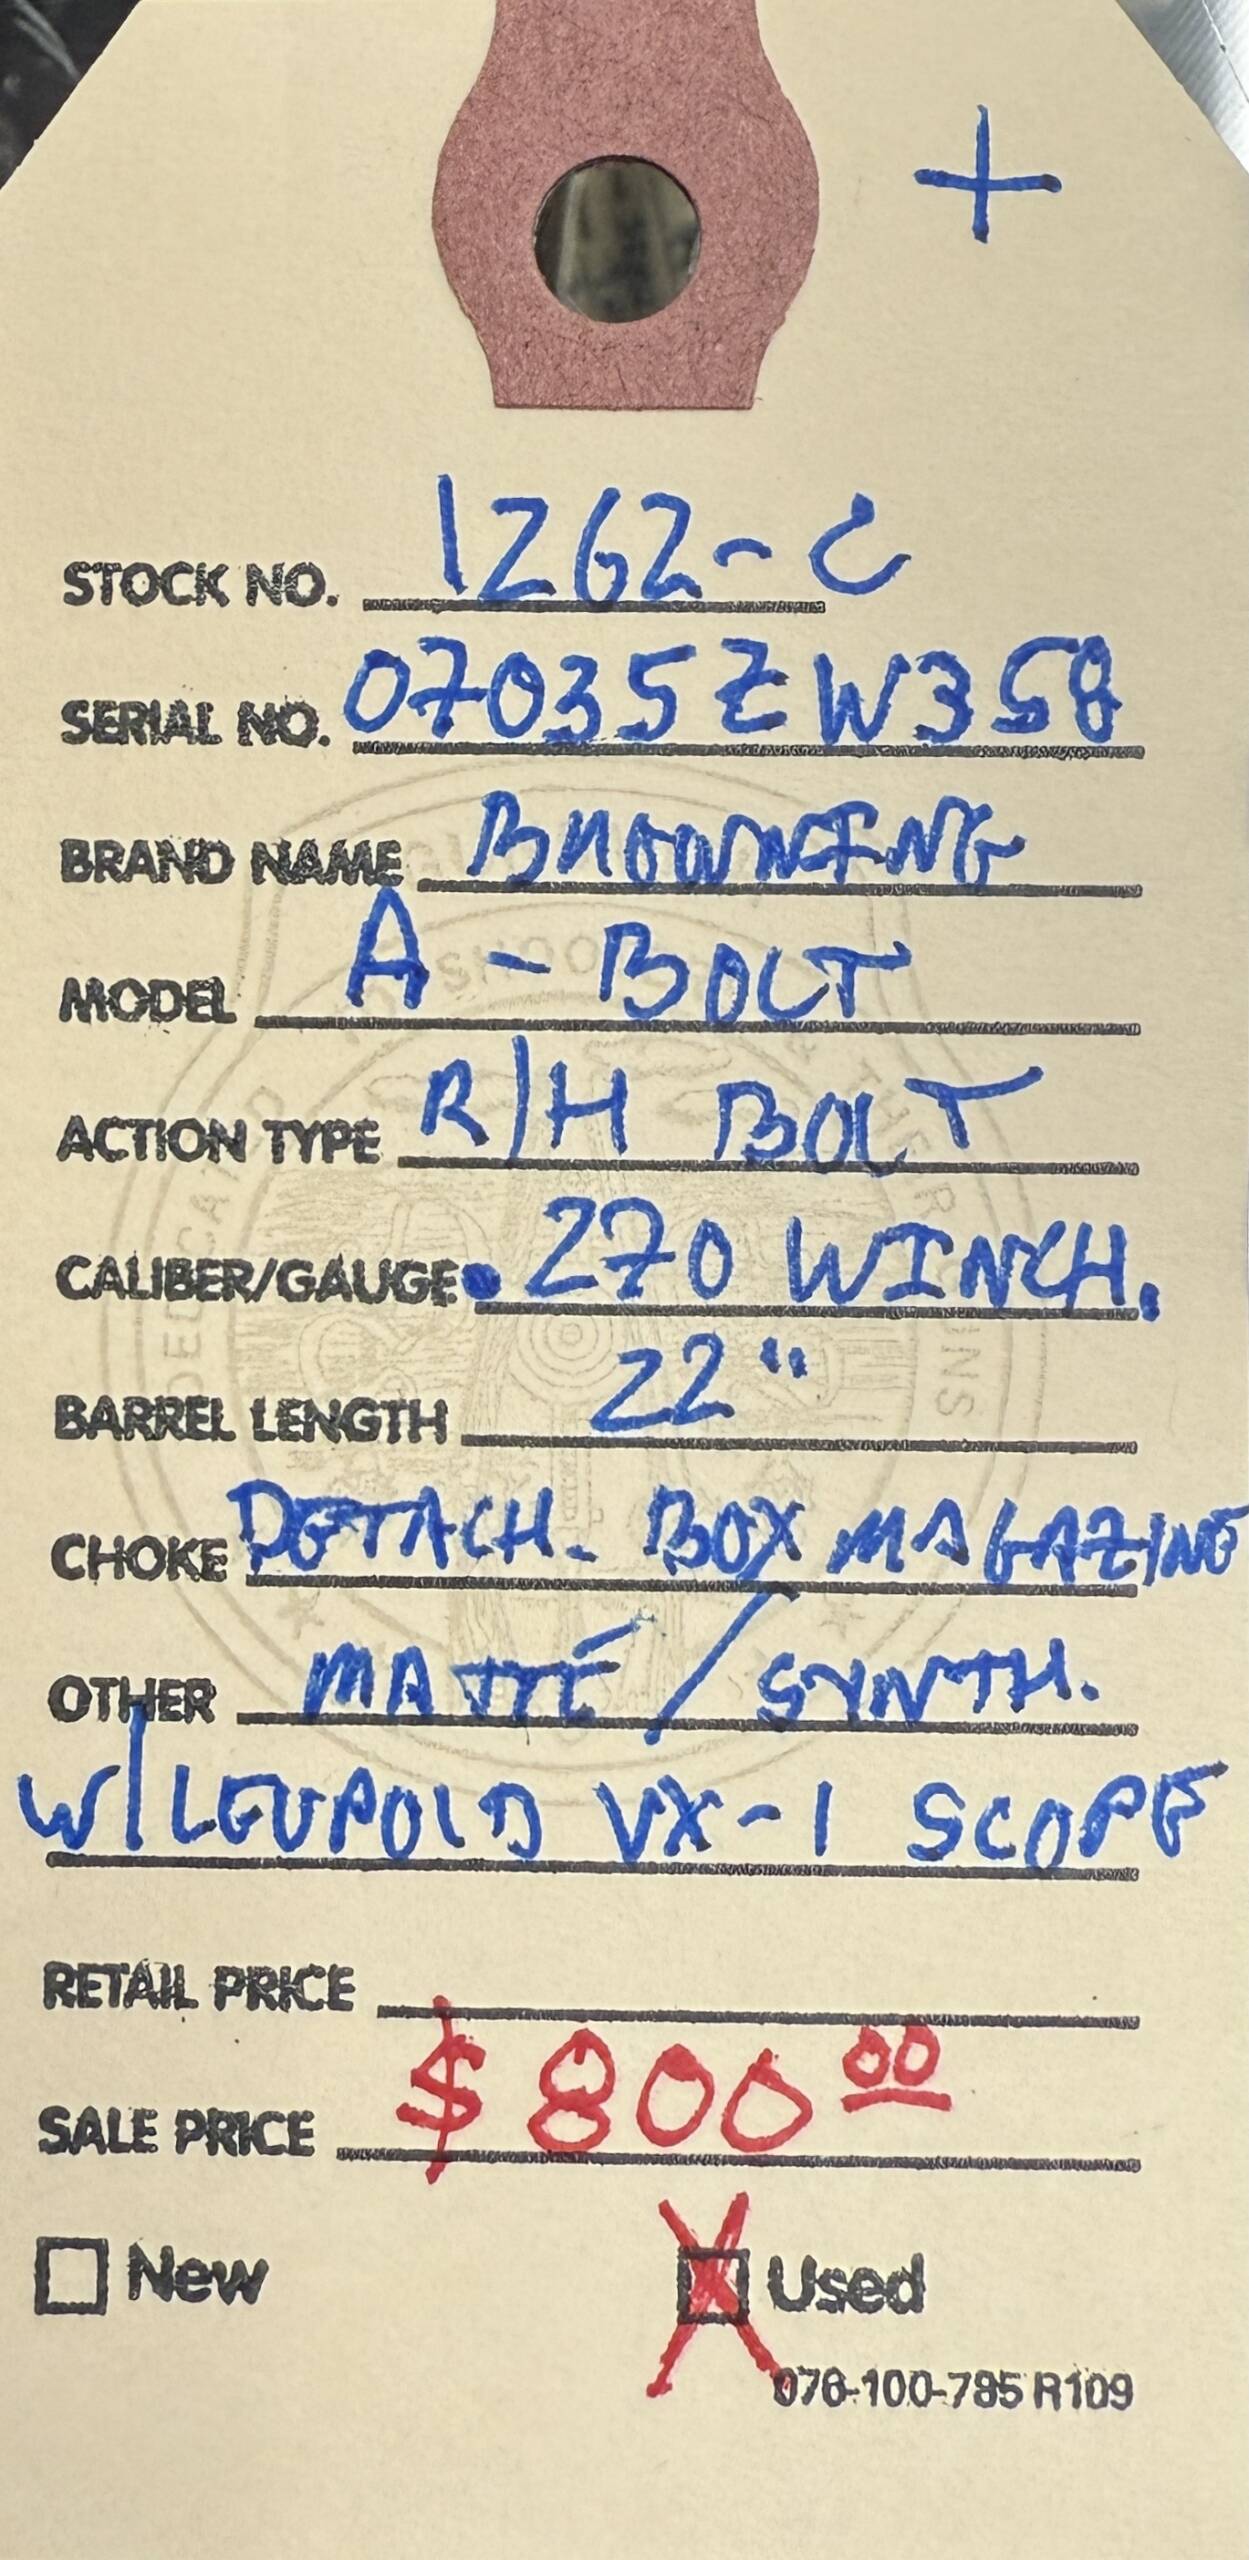 +
STOCK NO. 1262-C
SERIAL NO. 07035ZW358
BRAND NAME BROWNING
MODEL A-BOLT
ACTION TYPE R/H BOLT
CALIBER/GAUGE .270 WINCH.
BARREL LENGTH 22"
CHOKE DETACH. BOX MAGAZINE
OTHER MATTE/SYNTH.
W/LEUPOLD VX-1 SCOPE
RETAIL PRICE
SALE PRICE $800 00
New X Used
076-100-785 R109